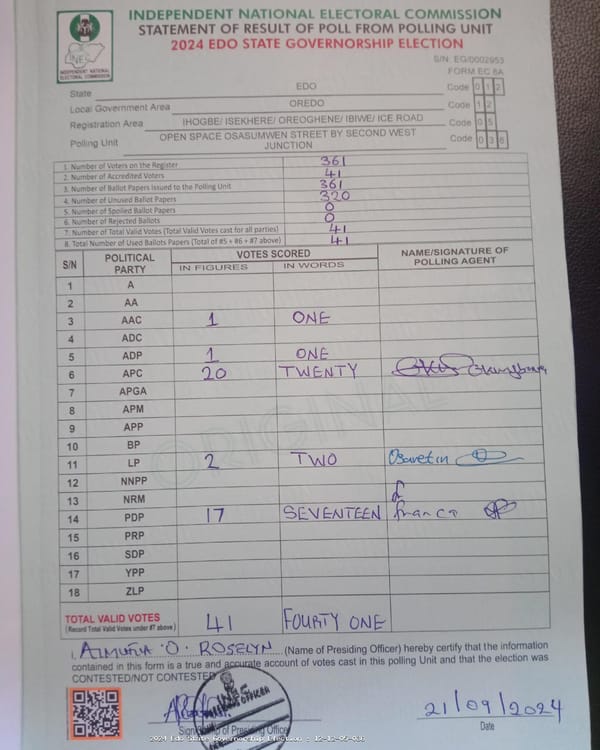 INDEPENDENT NATIONAL ELECTORAL COMMISSION
STATEMENT OF RESULT OF POLL FROM POLLING UNIT
2024 EDO STATE GOVERNORSHIP ELECTION
INEC
INDEPENDENT NATIONAL ELECTORAL COMMISSION
S/N: EG/0002953
FORM EC 8A
State EDO Code 0 1 2
Local Government Area OREDO Code 1 2
Registration Area IHOGBE/ ISEKHERE/ OREOGHENE/ IBIWE/ ICE ROAD Code 0 5
Polling Unit OPEN SPACE OSASUMWEN STREET BY SECOND WEST JUNCTION Code 0 3 6
1. Number of Voters on the Register 361
2. Number of Accredited Voters 41
3. Number of Ballot Papers Issued to the Polling Unit 361
4. Number of Unused Ballot Papers 320
5. Number of Spoiled Ballot Papers 0
6. Number of Rejected Ballots 0
7. Number of Total Valid Votes (Total Valid Votes cast for all parties) 41
8. Total Number of Used Ballots Papers (Total of #5 + #6 + #7 above) 41
S/N POLITICAL PARTY VOTES SCORED NAME/SIGNATURE OF POLLING AGENT
IN FIGURES IN WORDS
1 A
2 AA
3 AAC 1 ONE
4 ADC
5 ADP 1 ONE
6 APC 20 TWENTY
7 APGA
8 APM
9 APP
10 BP
11 LP 2 TWO
12 NNPP
13 NRM
14 PDP 17 SEVENTEEN
15 PRP
16 SDP
17 YPP
18 ZLP
ORIGINAL
TOTAL VALID VOTES 41 FOURTY ONE
(Record Total Valid Votes under #7 above)
I, ROSELYN (Name of Presiding Officer) hereby certify that the information
contained in this form is a true and accurate account of votes cast in this polling Unit and that the election was
CONTESTED/NOT CONTESTED
21/09/2024
Sign of Presiding Officer Date
2024 Edo State Governorship Election - 12-12-05-036